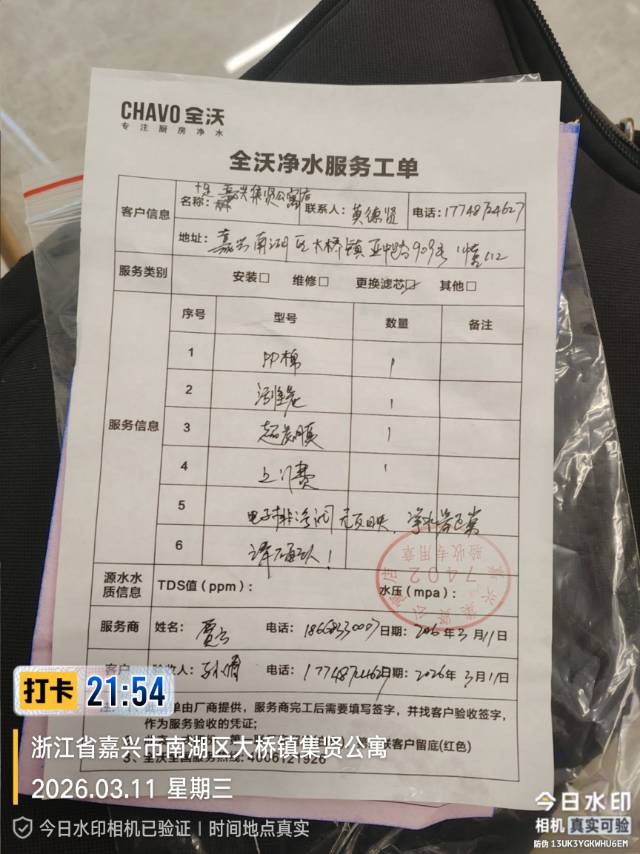 CHAVO 全沃
专注厨房净水
全沃净水服务工单
客户信息
名称: 嘉兴集贤公寓店
联系人: 黄德贤
电话: 17748724627
地址: 嘉兴南湖区大桥镇亚中路909号
服务类别
安装□ 维修□ 更换滤芯☑ 其他□
服务信息
序号 型号 数量 备注
1 PP棉 1
2 1
3 超滤膜 1
4 上门费 1
5 电子排净阀无反映,净水器已装
6 请确认!
源水水质信息
TDS值 (ppm):
水压 (mpa):
验收专用章
7402
服务商
姓名: 电话: 日期: 2026年3月11日
客户
验收人: 电话: 日期: 2026年3月11日
单由厂商提供,服务商完工后需要填写签字,并找客户验收签字,
作为服务验收的凭证;
联客户留底(红色)
3、全沃全国服务热线: 4006121926
打卡 21:54
浙江省嘉兴市南湖区大桥镇集贤公寓
2026.03.11 星期三
今日水印相机已验证 | 时间地点真实
今日水印
相机 真实可验
防伪 13UK3YGKWHU6EM